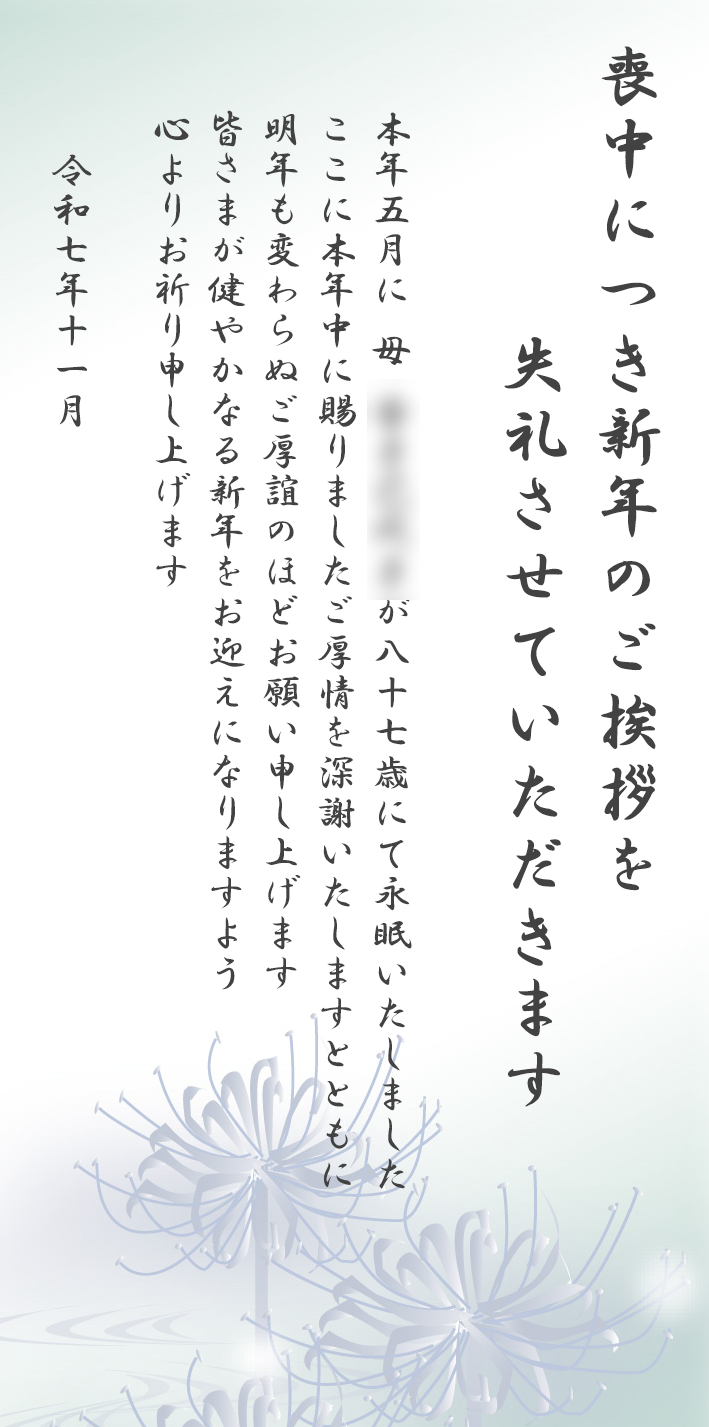 喪中につき新年のご挨拶を
失礼させていただきます
本年五月に 母 が八十七歳にて永眠いたしました
ここに本年中に賜りましたご厚情を深謝いたしますとともに
明年も変わらぬご厚誼のほどお願い申し上げます
皆さまが健やかなる新年をお迎えになりますよう
心よりお祈り申し上げます
令和七年十一月